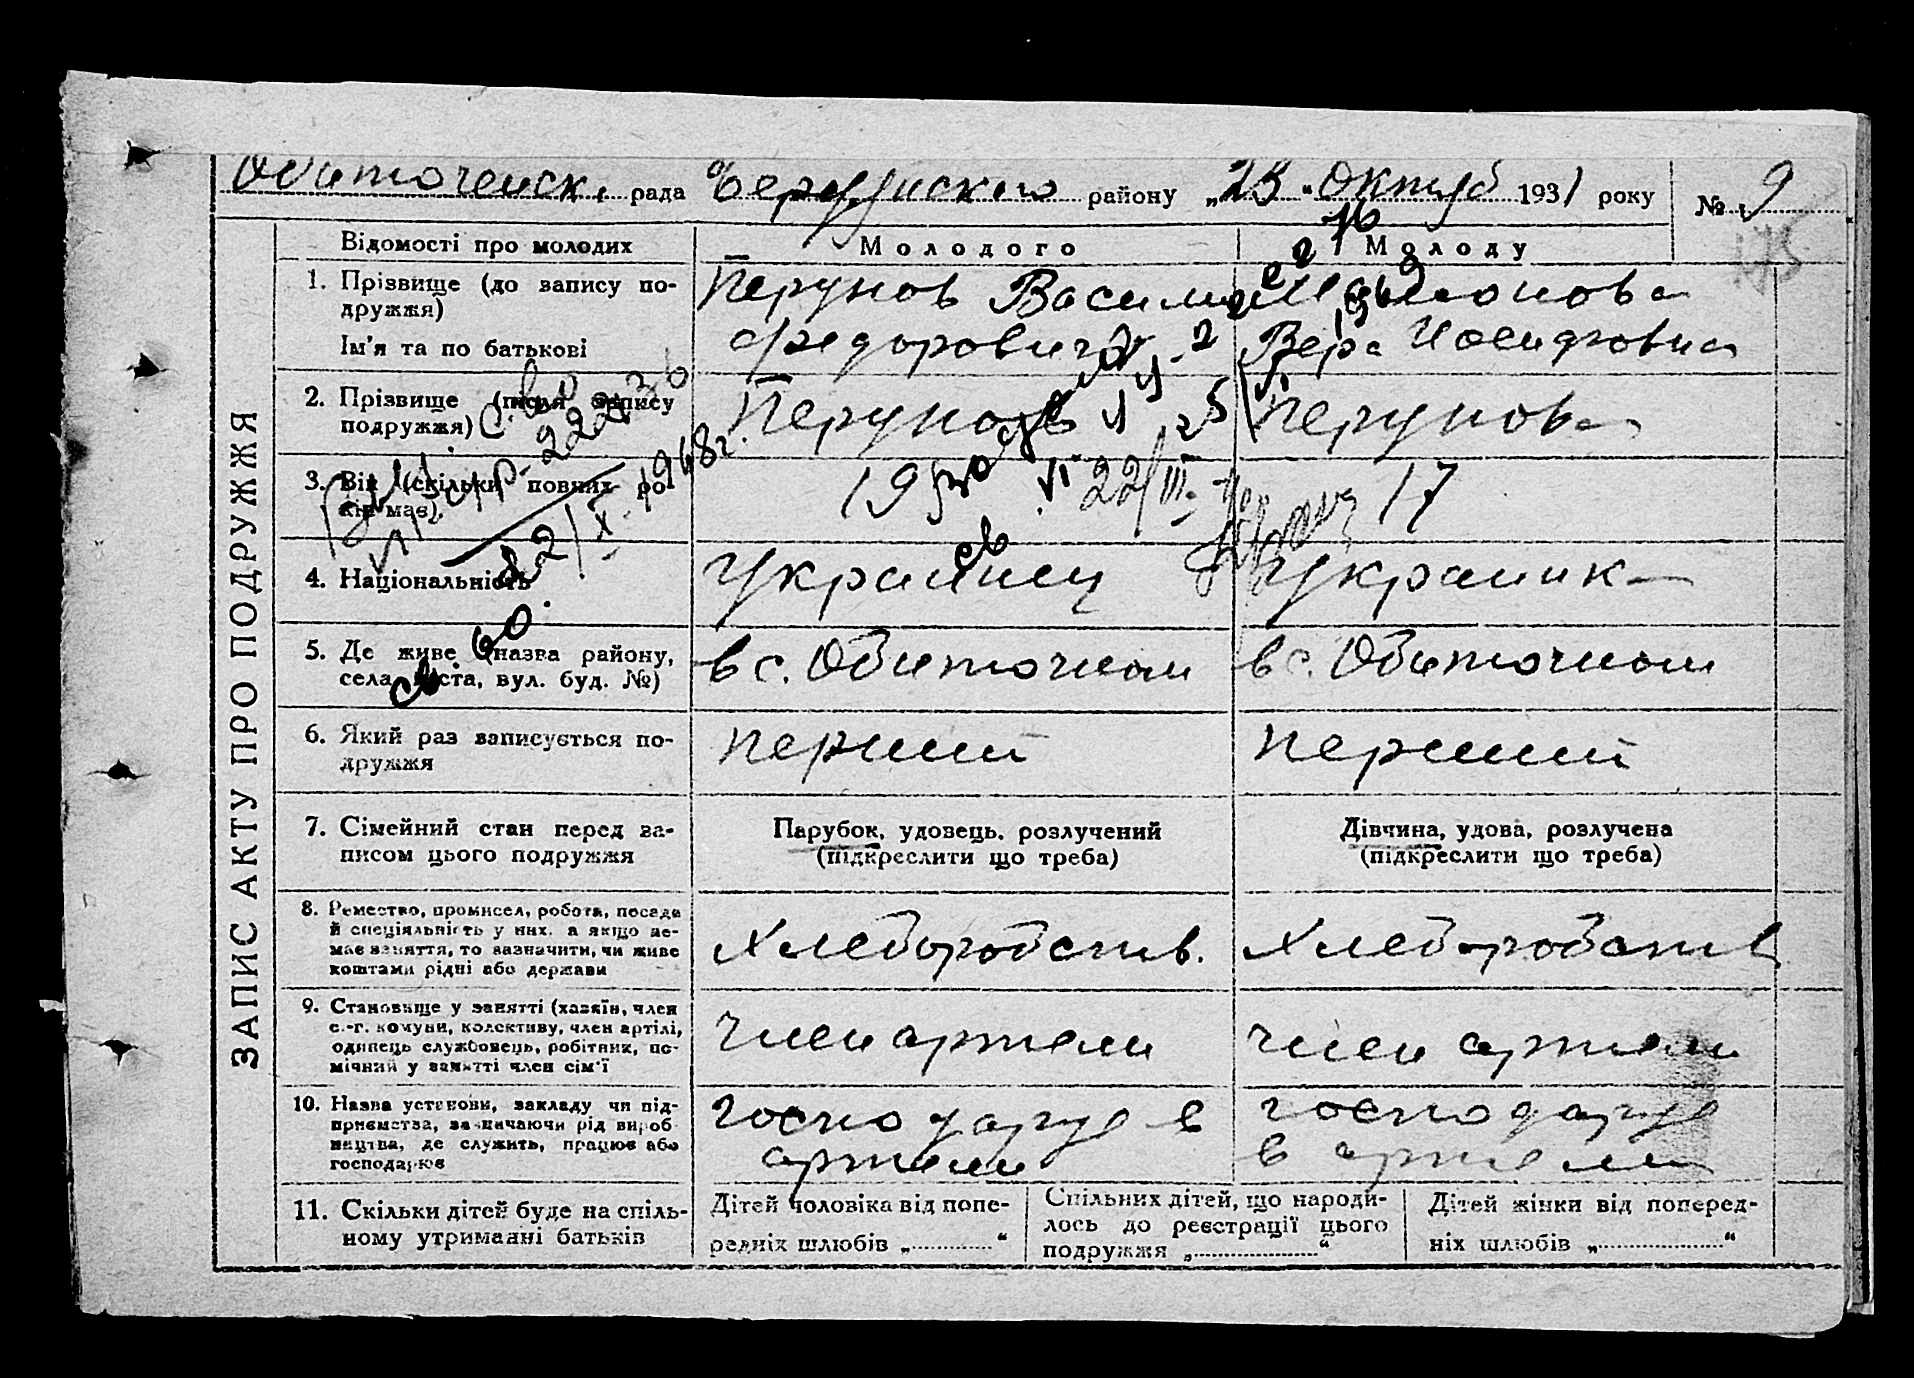 Обиточенск. рада Бердянского району „23" Октяб 1931 року № 9
175
ЗАПИС АКТУ ПРО ПОДРУЖЖЯ
Відомості про молодих
Молодого
Молоду
1. Прізвище (до запису по-
дружжя)
Ім'я та по батькові
Перунов Василий
Федорович
Вера Иосифовна
2. Прізвище (після запису
подружжя)
Перунов
Перунова
3. Вік (скільки повних ро-
ків має)
19
17
22/III
22/X 1948 г.
4. Національність
Украинец
Украинка
5. Де живе (назва району,
села, міста, вул. буд. №)
в с. Обиточном
в с. Обиточном
6. Який раз записується по-
дружжя
перший
перший
7. Сімейний стан перед за-
писом цього подружжя
Парубок, удовець, розлучений
(підкреслити що треба)
Дівчина, удова, розлучена
(підкреслити що треба)
8. Ремество, промисел, робота, посада
й спеціяльність у них, а якщо не-
має заняття, то зазначити, чи живе
коштами рідні або держави
Хлеборобств.
Хлеборобств
9. Становище у занятті (хазяїн, член
с.-г. комуни, колективу, член артілі,
одинець службовець, робітник, по-
мічний у занятті член сім'ї
член артели
член артели
10. Назва установи, закладу чи під-
приємства, зазначаючи рід вироб-
ництва, де служить, працює або
господарює
господарує в
артели
господарує
в артели
11. Скільки дітей буде на спіль-
ному утриманні батьків
Дітей чоловіка від попе-
редніх шлюбів „............"
Спільних дітей, що народи-
лось до реєстрації цього
подружжя „............"
Дітей жінки від поперед-
ніх шлюбів „............"